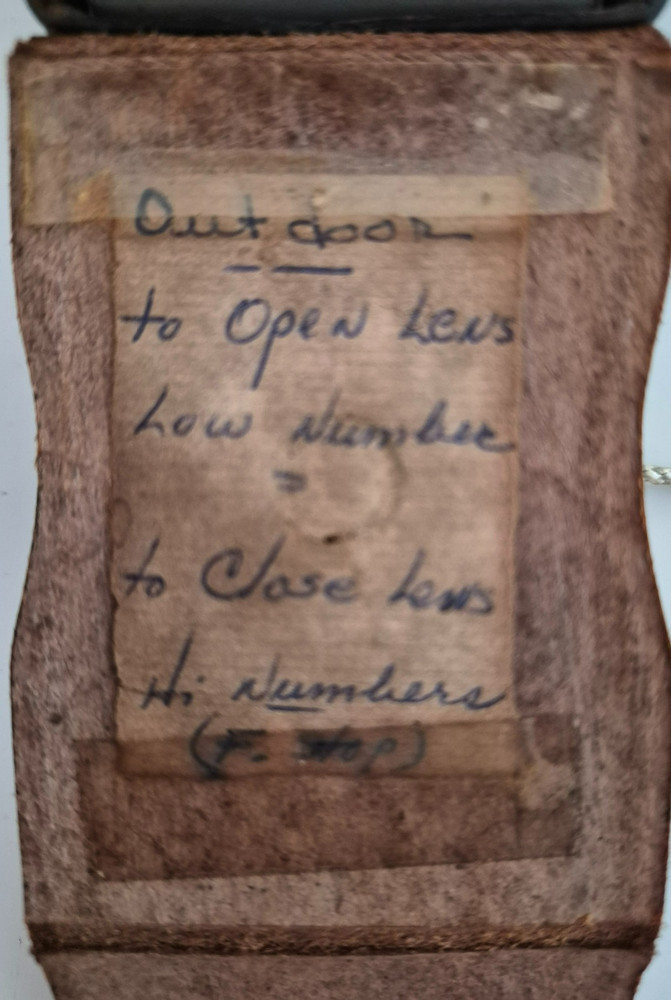 Outdoor
to Open Lens
Low Number
=
to Close Lens
Hi Numbers
(F. Stop)